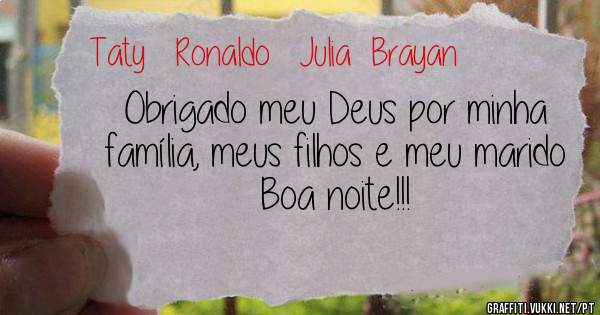 Taty Ronaldo Julia Brayan
Obrigado meu Deus por minha
família, meus filhos e meu marido
Boa noite!!!
GRAFFITI.VUKKI.NET/PT